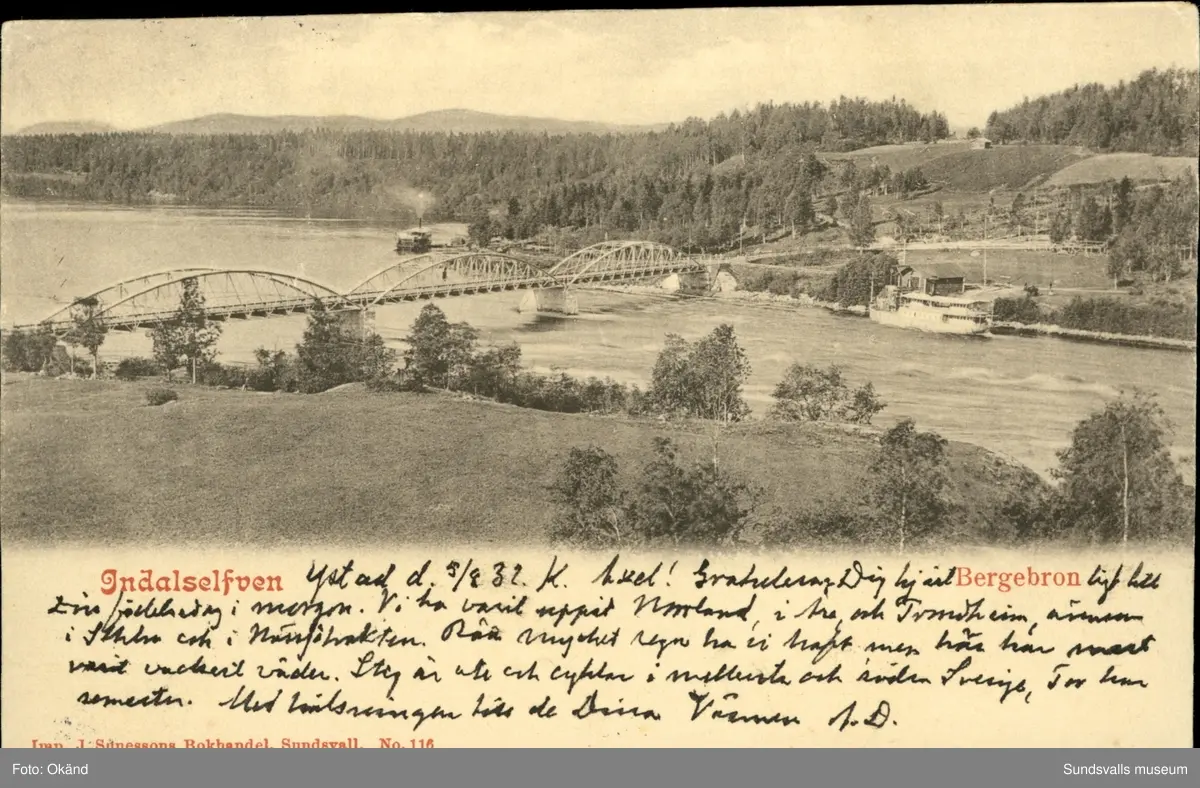 Indalselfven Ystad d. 5/8 32. K. Axel! Gratulerar Dig hjärt Bergebron ligt till
Din födelsedag i morgon. Vi ha varit uppåt Norrland, i Åre och Trondheim, även
i Sthlm och i Nässjötrakten. Rätt mycket regn ha vi haft men här har mest
varit vackert väder. Stig är ute och cyklar i mellersta och södra Sverige, Tor har
semester. Med hälsningar till de Dina Vännen A. D.
Imp. J. Sunessons Bokhandel, Sundsvall. No. 116
Foto: Okänd
Sundsvalls museum